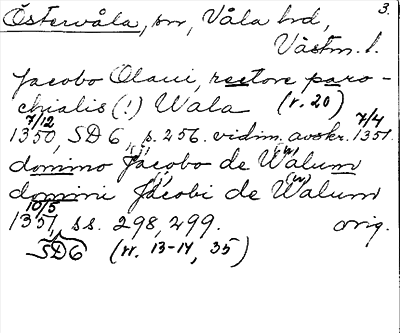 Östervåla, sn, Våla hd, 3.
Västm. l.
Jacobo Olaui, rectore paro-
chialis (!) Wala (r. 20)
7/12 7/4
1350, SD 6, s. 256. vidim. avskr. 1351.
domino Jacobo de Walum
domini Jacobi de Walum
10/5
1351, ss. 298, 299. orig.
SD 6 (rr. 13-14, 35)